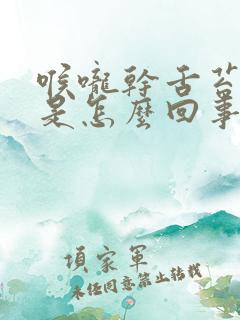 喉嚨幹舌苔
是怎麼回事
項家軍
未經同意禁止轉載